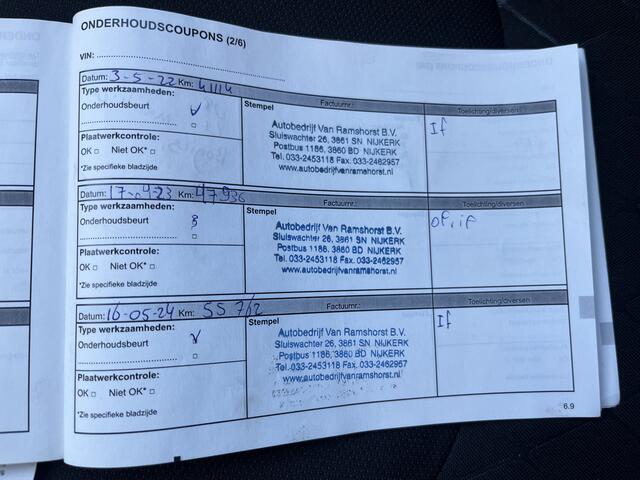 ONDERHOUDSCOUPONS (2/6)
VIN:
Datum: 3-5-22 Km: 41114
Factuurnr.:
Toelichting/diversen
Type werkzaamheden:
Onderhoudsbeurt
Stempel
If
Autobedrijf Van Ramshorst B.V.
Sluiswachter 26, 3861 SN NIJKERK
Postbus 1186, 3860 BD NIJKERK
Tel. 033-2453118 Fax. 033-2462957
www.autobedrijfvanramshorst.nl
Plaatwerkcontrole:
OK □ Niet OK* □
*Zie specifieke bladzijde
Datum: 17-04-23 Km: 47936
Factuurnr.:
Toelichting/diversen
Type werkzaamheden:
Onderhoudsbeurt
Stempel
of, if
Autobedrijf Van Ramshorst B.V.
Sluiswachter 26, 3861 SN NIJKERK
Postbus 1186, 3860 BD NIJKERK
Tel. 033-2453118 Fax. 033-2462957
www.autobedrijfvanramshorst.nl
Plaatwerkcontrole:
OK □ Niet OK* □
*Zie specifieke bladzijde
Datum: 16-05-24 Km: 55 762
Factuurnr.:
Toelichting/diversen
Type werkzaamheden:
Onderhoudsbeurt
Stempel
If
Autobedrijf Van Ramshorst B.V.
Sluiswachter 26, 3861 SN NIJKERK
Postbus 1186, 3860 BD NIJKERK
Tel. 033-2453118 Fax. 033-2462957
www.autobedrijfvanramshorst.nl
Plaatwerkcontrole:
OK □ Niet OK* □
*Zie specifieke bladzijde
6.9